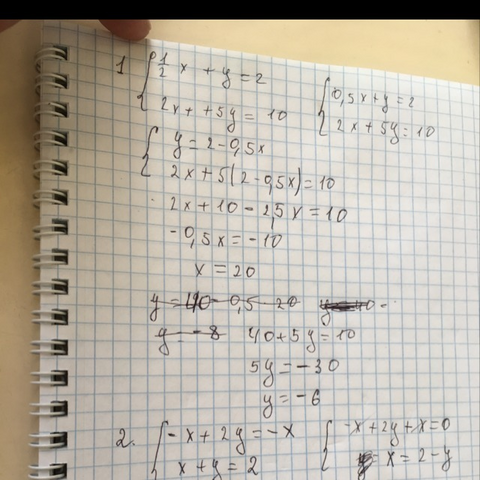 1 { 1/2 x + y = 2
2x + +5y = 10
{ 0,5x+y=2
2x+5y=10
{ y = 2-0,5x
2x+5(2-0,5x)=10
2x+10-2,5x=10
-0,5x=-10
x=20
y = 10 - 0,5 20
y = -8
40+5y=10
5y=-30
y=-6
2. { -x+2y=-x
x+y=2
{ -x+2y+x=0
x=2-y